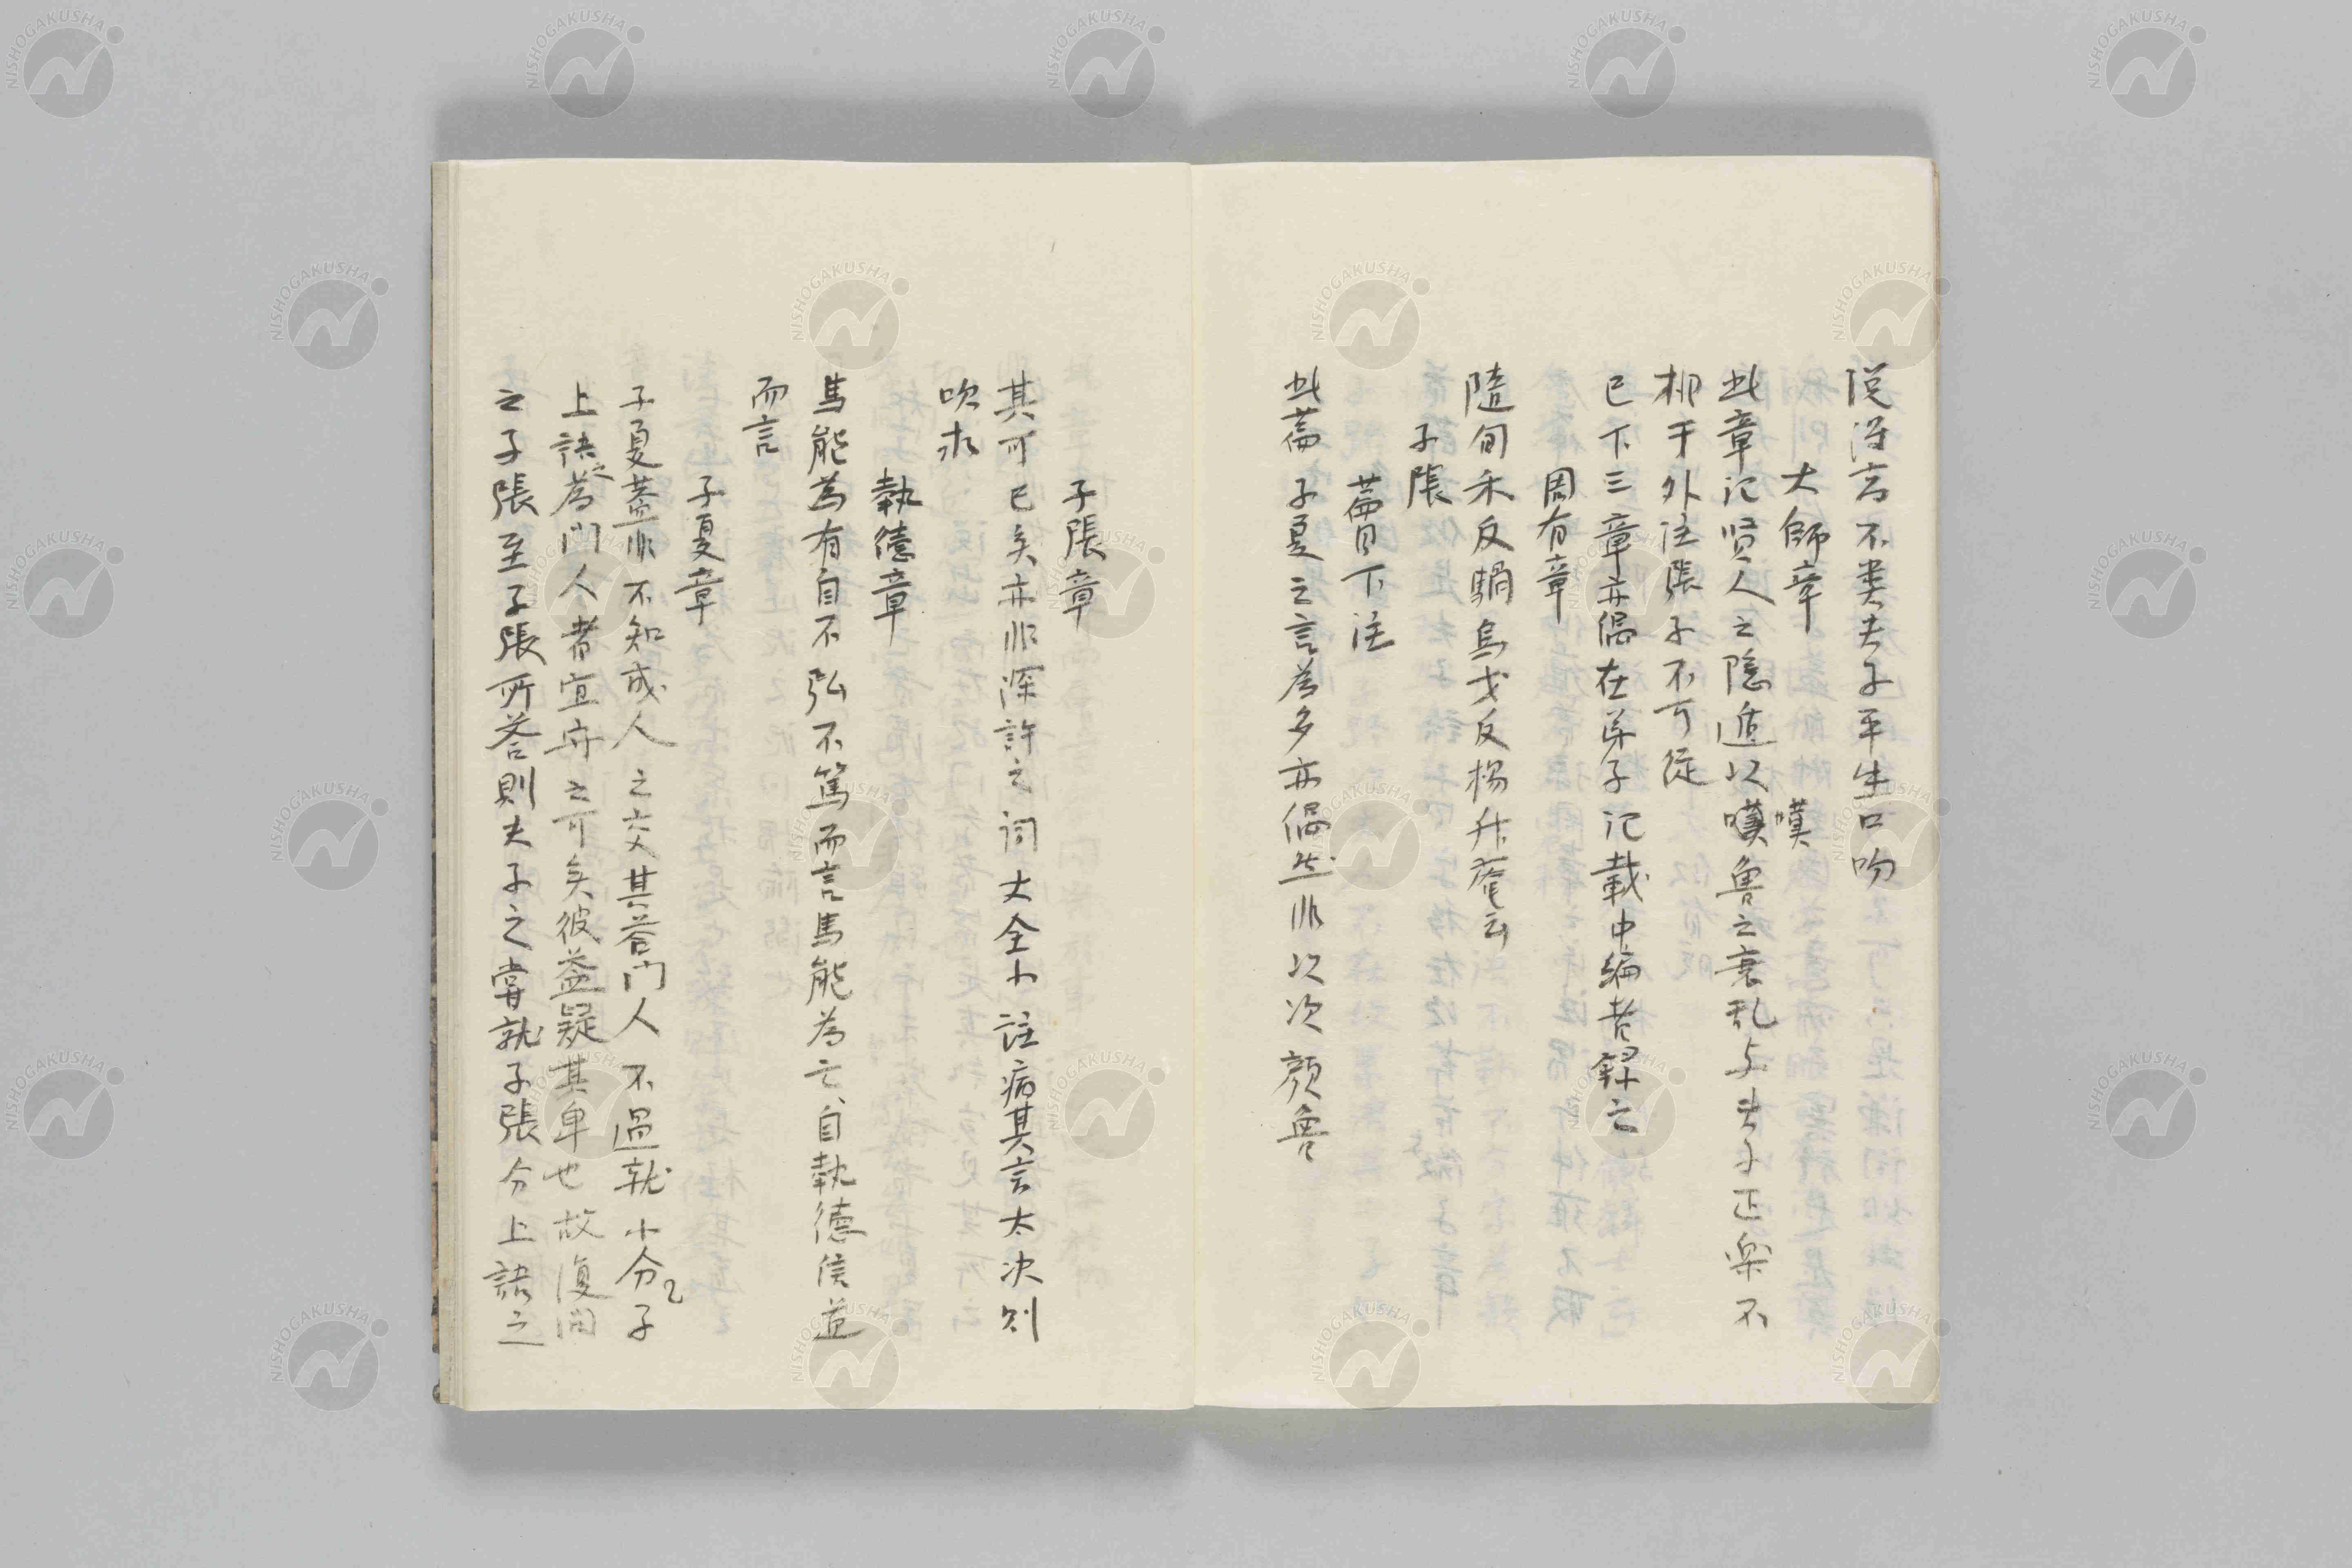 説得高不類夫子平生口吻
大師章
此章記賢人之隠遁以嘆魯之衰乱与夫子正楽不
嘆
柳于外注張子不可従
已下三章亦偶在弟子記載中編者録之
周有章
隨旬禾反騧烏戈反楊升菴云
子張
篇目下注
此篇子夏之言為多亦偶然非以次顔魯
子張章
其可已矣亦非深許之詞大全小註病其言太決則
吹求
執徳章
焉能為有自不弘不篤而言焉能為亡自執徳信道
而言
子夏章
子夏蓋非不知成人之交其答門人不過就小分子
上訣之為門人者宜弁之可矣彼益疑其卑也故復問
之子張至子張所答則夫子之嘗就子張分上訣之